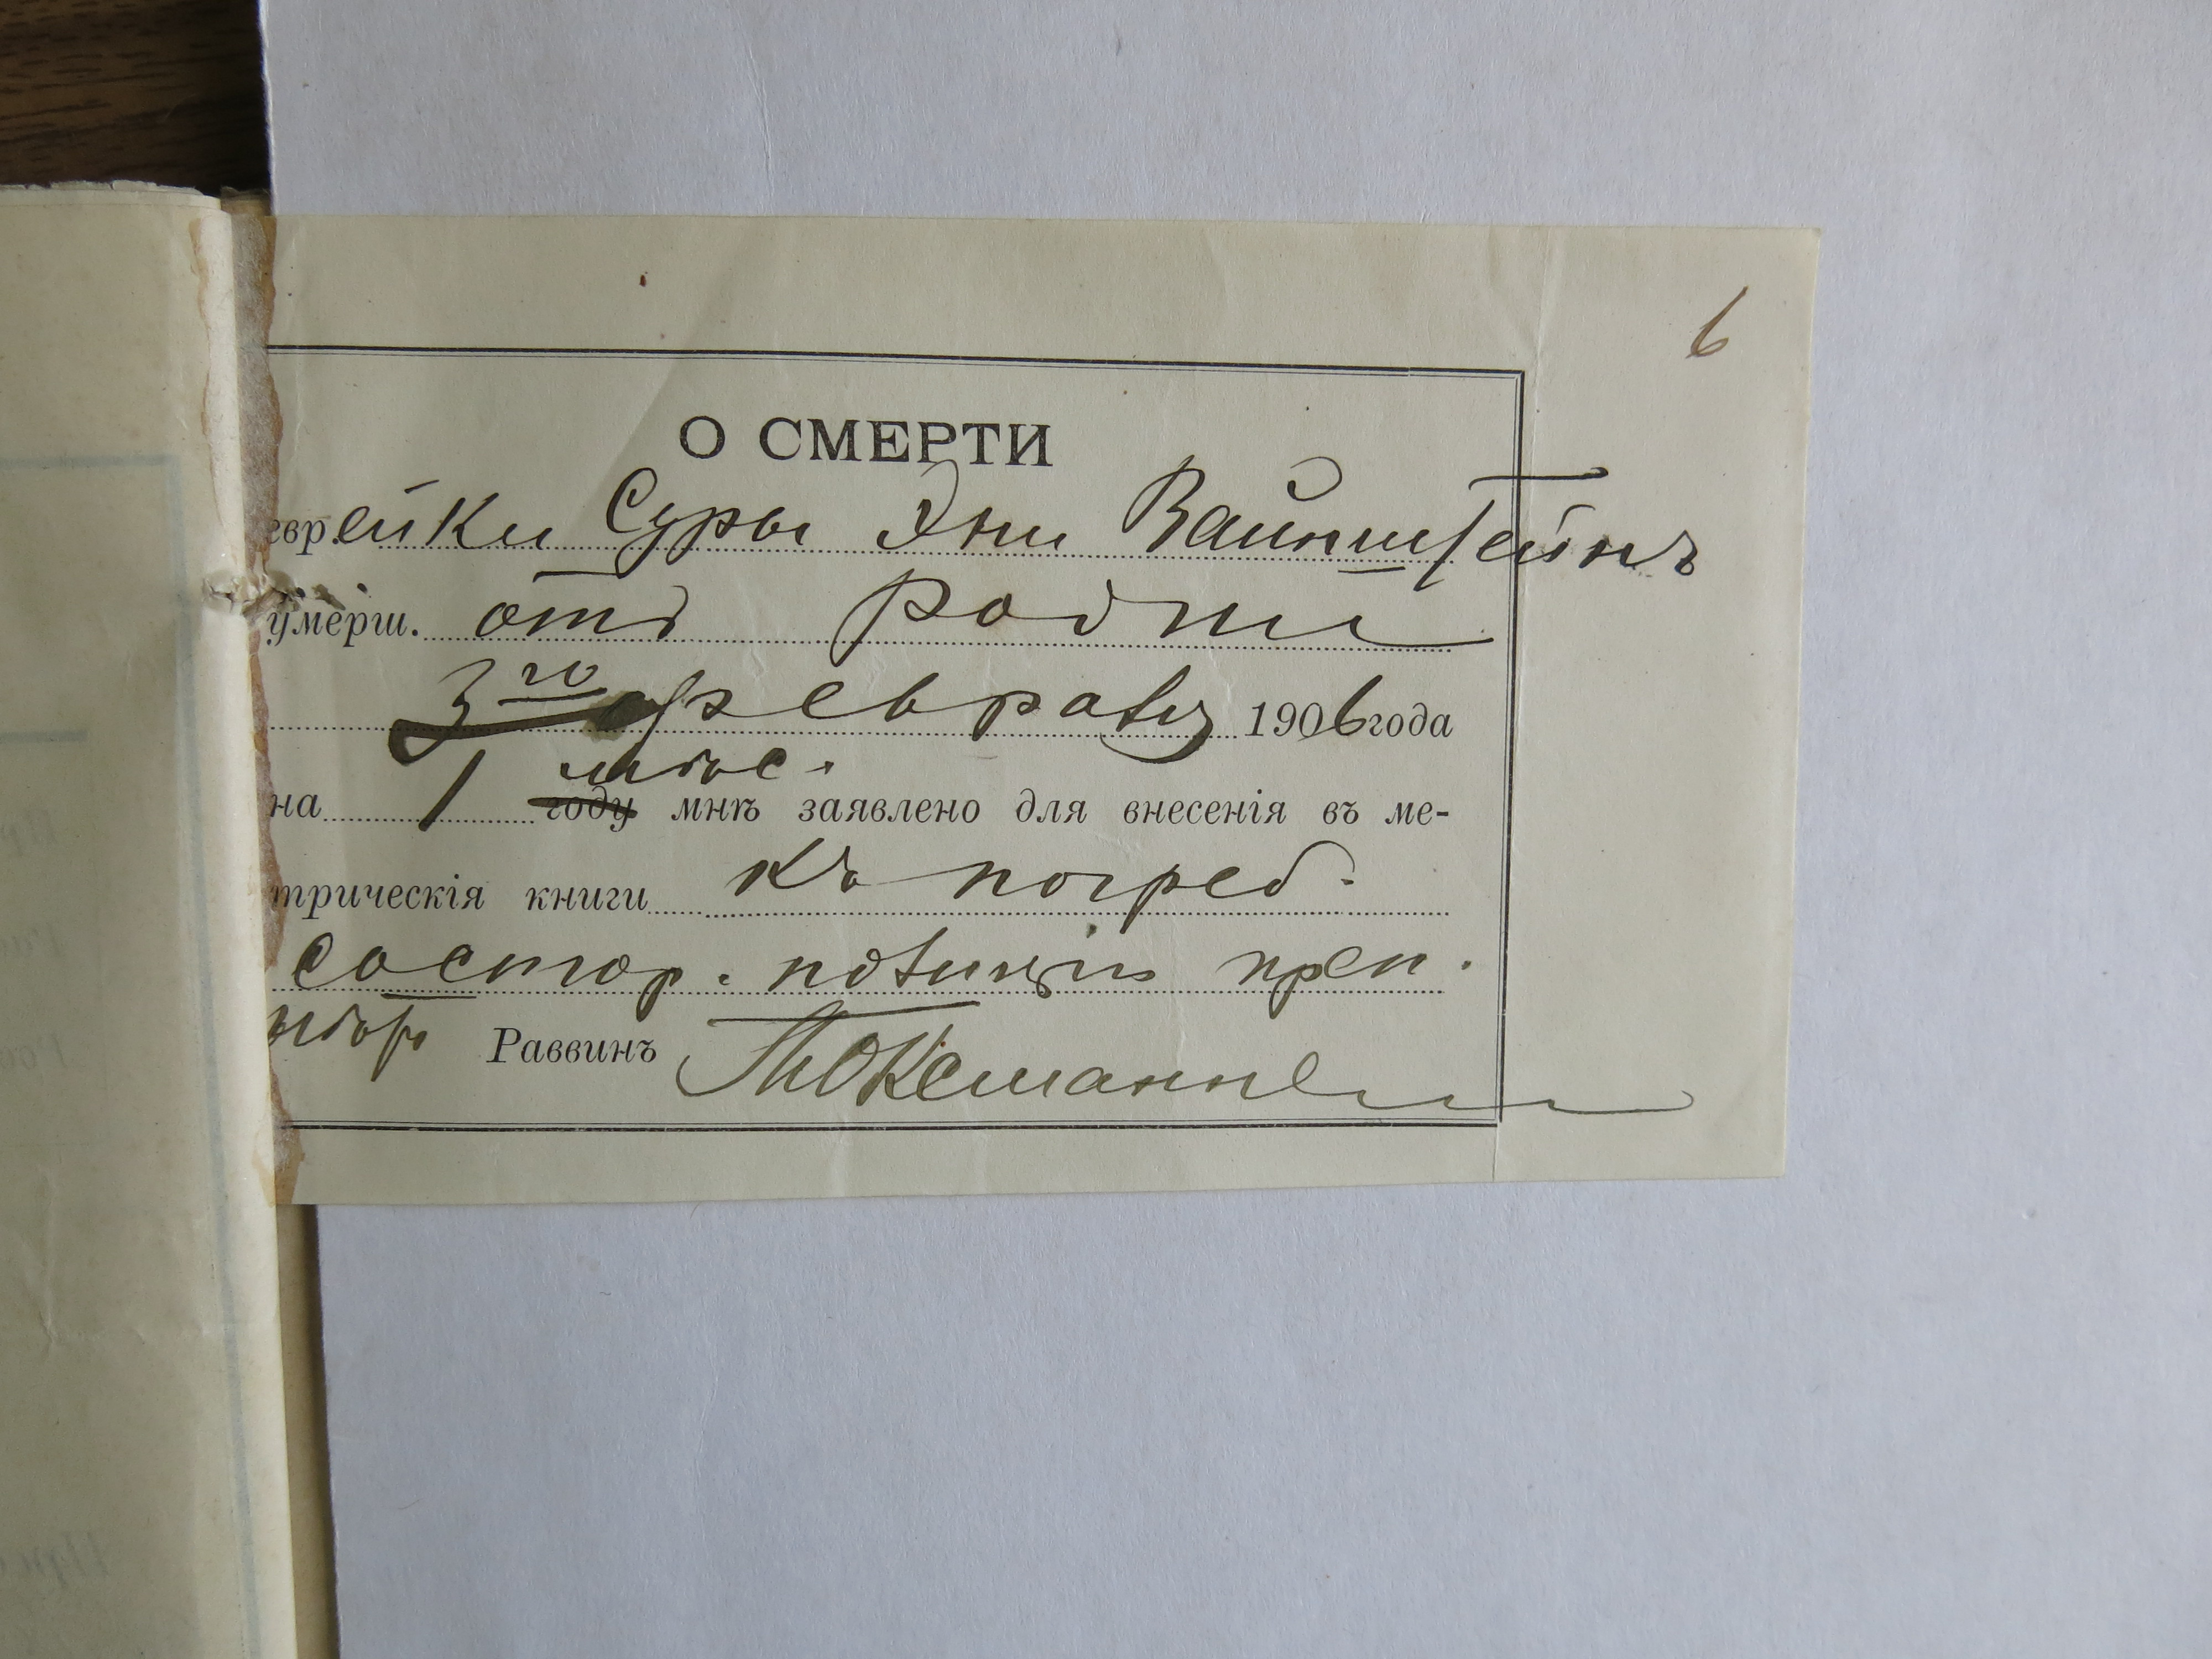 6
О СМЕРТИ
еврейки Суры Эни Вайнштейнъ
умерш. отъ родни
3го февраля 1906 года
мѣс.
на 1 году мнѣ заявлено для внесенія въ ме-
трическія книги къ погреб.
состор. полиціи преп.
Раввинъ